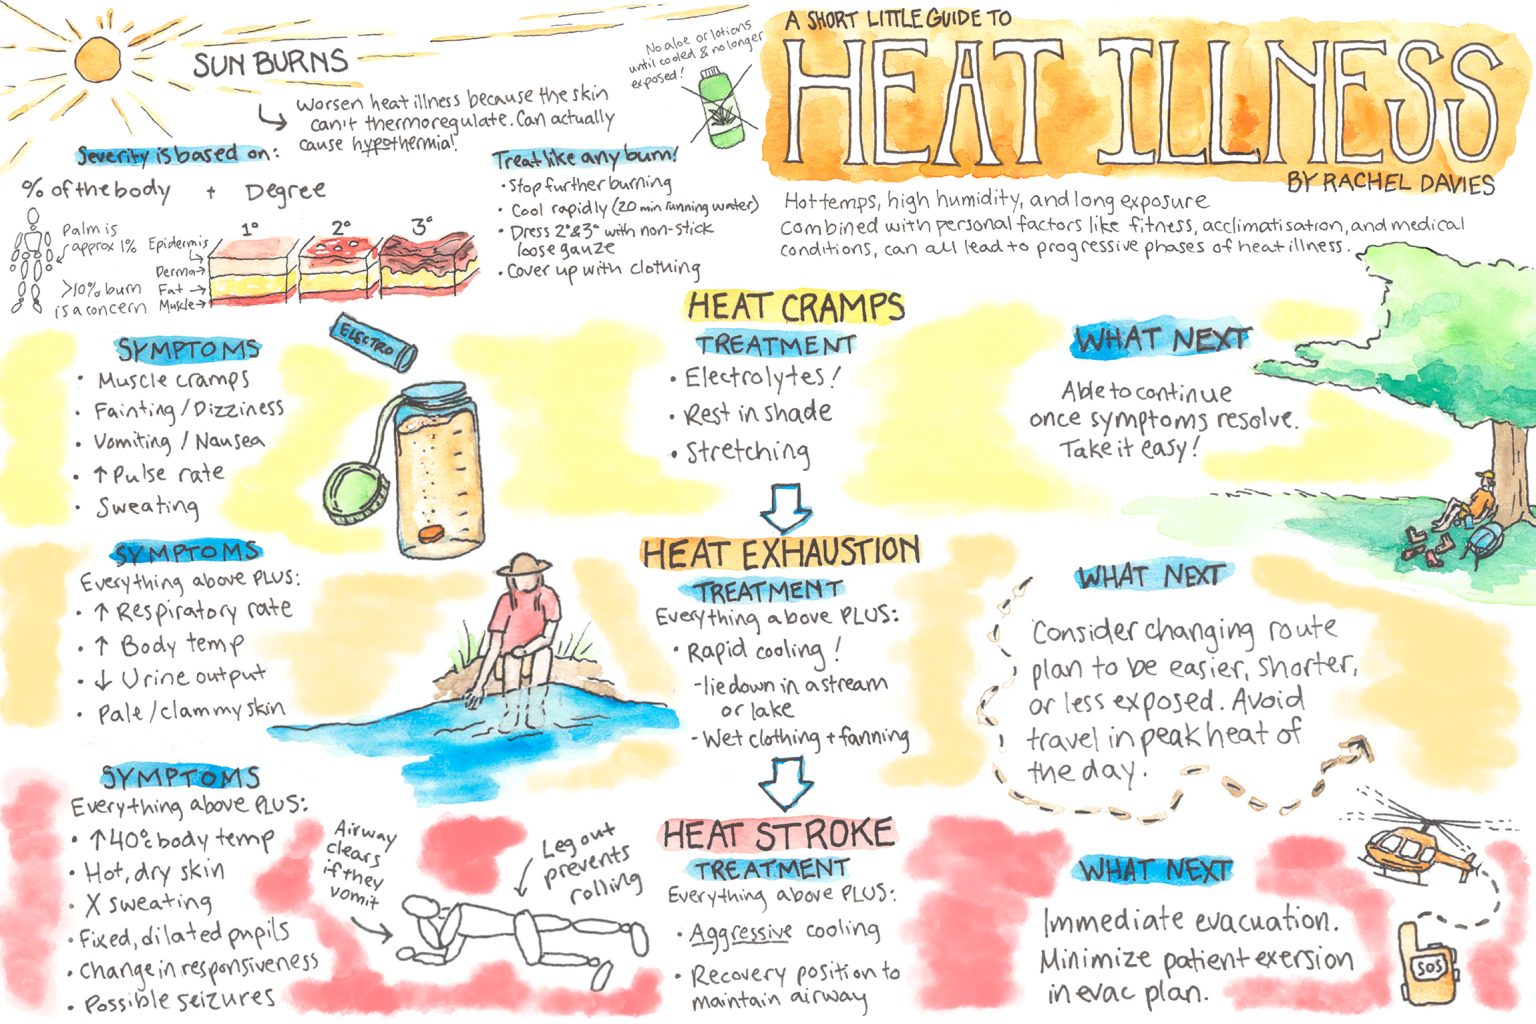 A SHORT LITTLE GUIDE TO
HEAT ILLNESS
BY RACHEL DAVIES
Hot temps, high humidity, and long exposure
combined with personal factors like fitness, acclimatisation, and medical
conditions, can all lead to progressive phases of heat illness.
SUN BURNS
worsen heat illness because the skin
can't thermoregulate. Can actually
cause hypothermia!
Severity is based on:
% of the body + Degree
Palm is
approx 1%
>10% burn
is a concern
1° 2° 3°
Epidermis
Derma
Fat
Muscle
No aloe or lotions
until cooled & no longer
exposed!
Treat like any burn!
• Stop further burning
• Cool rapidly (20 min running water)
• Dress 2° & 3° with non-stick
loose gauze
• Cover up with clothing
HEAT CRAMPS
SYMPTOMS
• Muscle cramps
• Fainting / Dizziness
• Vomiting / Nausea
• ↑ Pulse rate
• Sweating
ELECTRO
TREATMENT
• Electrolytes!
• Rest in shade
• Stretching
WHAT NEXT
Able to continue
once symptoms resolve.
Take it easy!
HEAT EXHAUSTION
SYMPTOMS
Everything above PLUS:
• ↑ Respiratory rate
• ↑ Body temp
• ↓ Urine output
• Pale / clammy skin
TREATMENT
Everything above PLUS:
• Rapid cooling!
- lie down in a stream
or lake
- Wet clothing + fanning
WHAT NEXT
Consider changing route
plan to be easier, shorter,
or less exposed. Avoid
travel in peak heat of
the day.
HEAT STROKE
SYMPTOMS
Everything above PLUS:
• ↑40°c body temp
• Hot, dry skin
• X sweating
• Fixed, dilated pupils
• Change in responsiveness
• Possible seizures
Airway
clears
if they
vomit
Leg out
prevents
rolling
TREATMENT
Everything above PLUS:
• Aggressive cooling
• Recovery position to
maintain airway
WHAT NEXT
Immediate evacuation.
Minimize patient exersion
in evac plan.
SOS